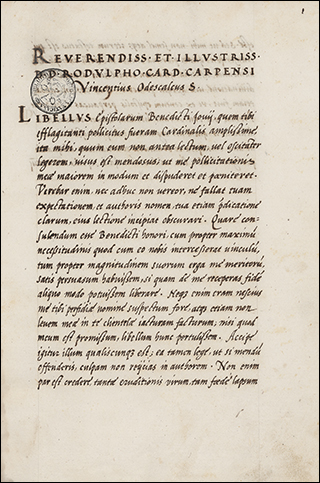 1
REVERENDISS. ET ILLUSTRISS.
D.D. RODVLPHO. CARD. CARPENSI
Vincentius Odescalcus S.
LIBELLUS Epistolarum Benedicti Iovij, quem tibi
efflagitanti pollicitus fueram Cardinalis amplissime,
ita mihi, quum eum non antea lectum, vel oscitater
legerem, visus est mendosus, ut me pollicitationis
meæ maiorem in modum et dispuderet et pœniteret.
Verebar enim, nec adhuc non vereor, ne fallat tuam
expectationem, et authoris nomen, tua etiam pdicatione
clarum, eius lectione incipiat obscurari. Quare con-
sulendum esse Benedicti honori, cum propter maximũ
necessitudinis quod cum eo nobis intercesserat vinculũ,
tum propter magnitudinem suorum erga me meritorũ,
satis persuasum habuissem, si quam de me receperas fidẽ
aliquo modo potuissem liberare. Neq3 enim eram nescius
me tibi perfidiæ nomine suspectum fore, aeq3 etiam non
levem meæ in te clientelæ iacturam facturum, nisi quod
meum est promissum, libellum hunc portulissem. Accipe
igitur illum qualiscunq3 est, ea tamen lege, ut si mendũ
offenderis, culpam non reijcias in authorem. Non enim
par est credere tantæ eruditionis virum, tam fœde lapsum